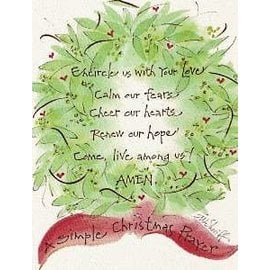 Encircle us with Your Love
Calm our fears
Cheer our hearts
Renew our hope
Come, live among us!
AMEN.
A Simple Christmas Prayer